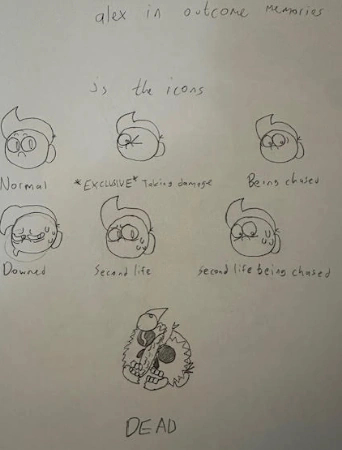 alex in outcome memories
js the icons
Normal
*EXCLUSIVE* Taking damage
Being chased
Downed
Second life
Second life being chased
DEAD